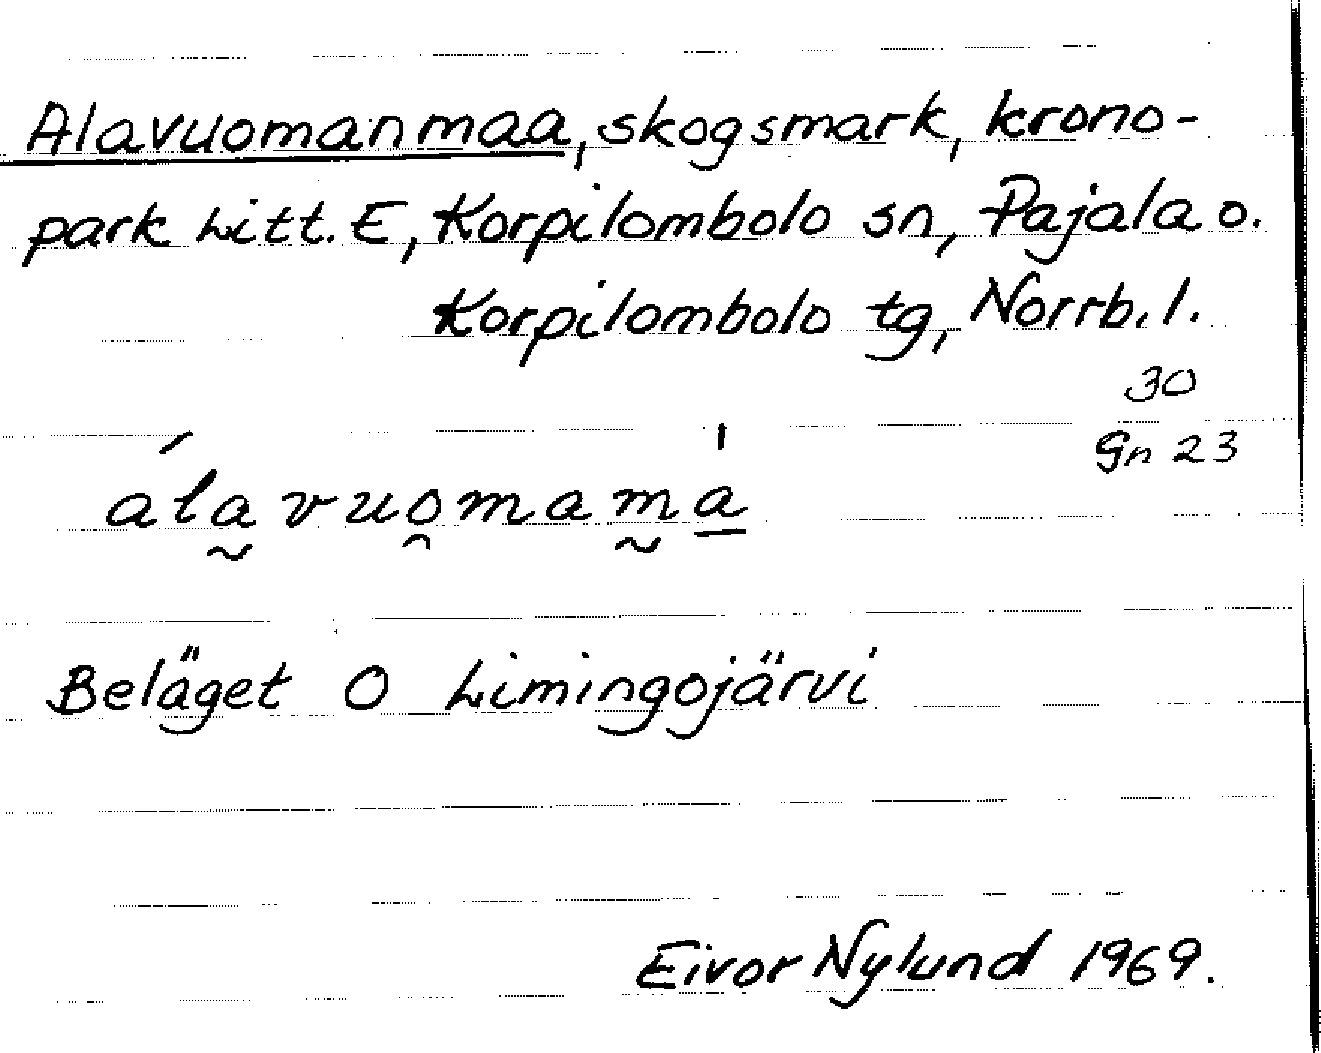 Alavuomanmaa, skogsmark, krono-
park Litt. E, Korpilombolo sn, Pajala o.
Korpilombolo tg, Norrb. l.
30
Gn 23
a̍la̰vuo̯mam̰a̱̍
Beläget O Limingojärvi
Eivor Nylund 1969.